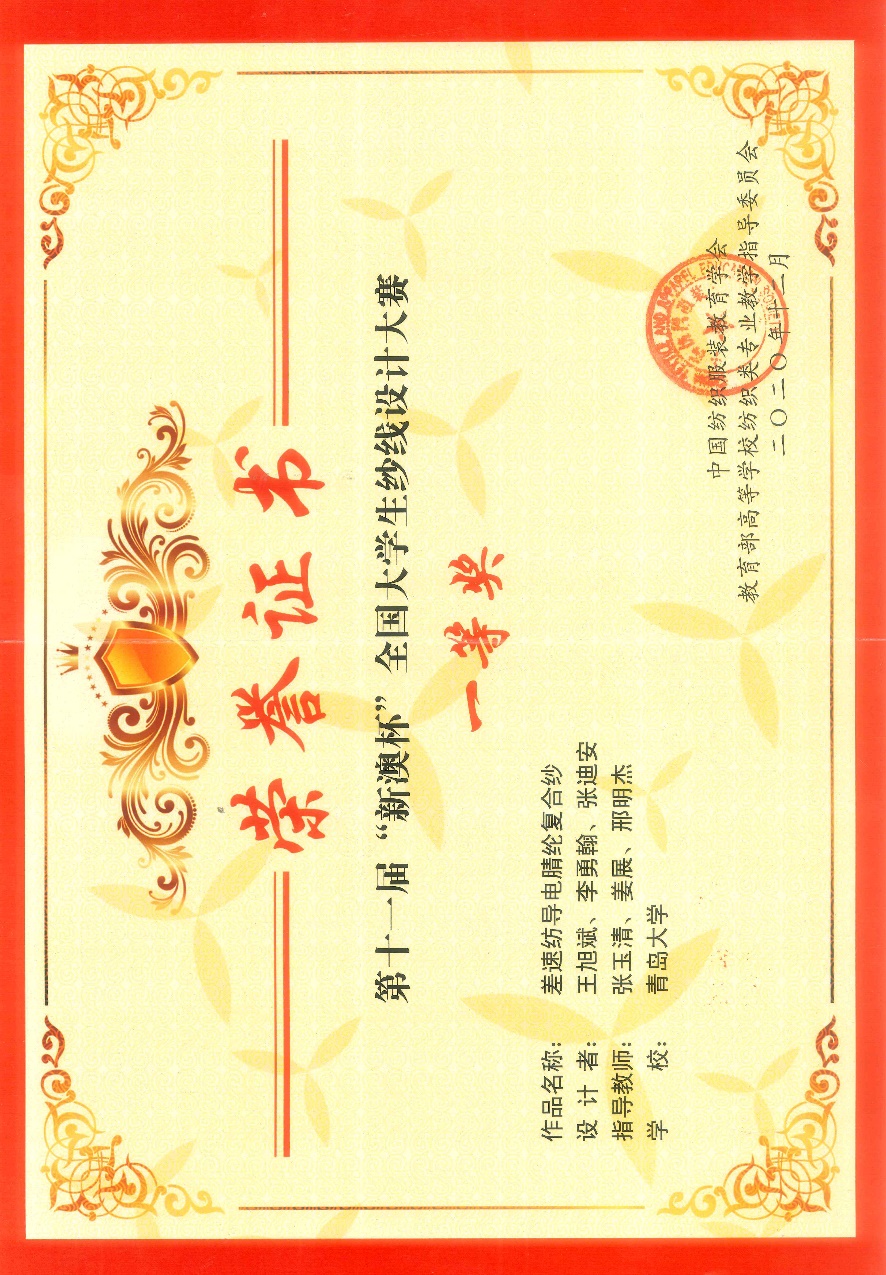 荣誉证书
第十一届“新澳杯”全国大学生纱线设计大赛
一等奖
作品名称：差速纺导电腈纶复合纱
设计者：王旭斌、李勇翰、张迪安
指导教师：张玉清、姜展、邢明杰
学校：青岛大学
中国纺织服装教育学会
教育部高等学校纺织类专业教学指导委员会
二〇二〇年十二月